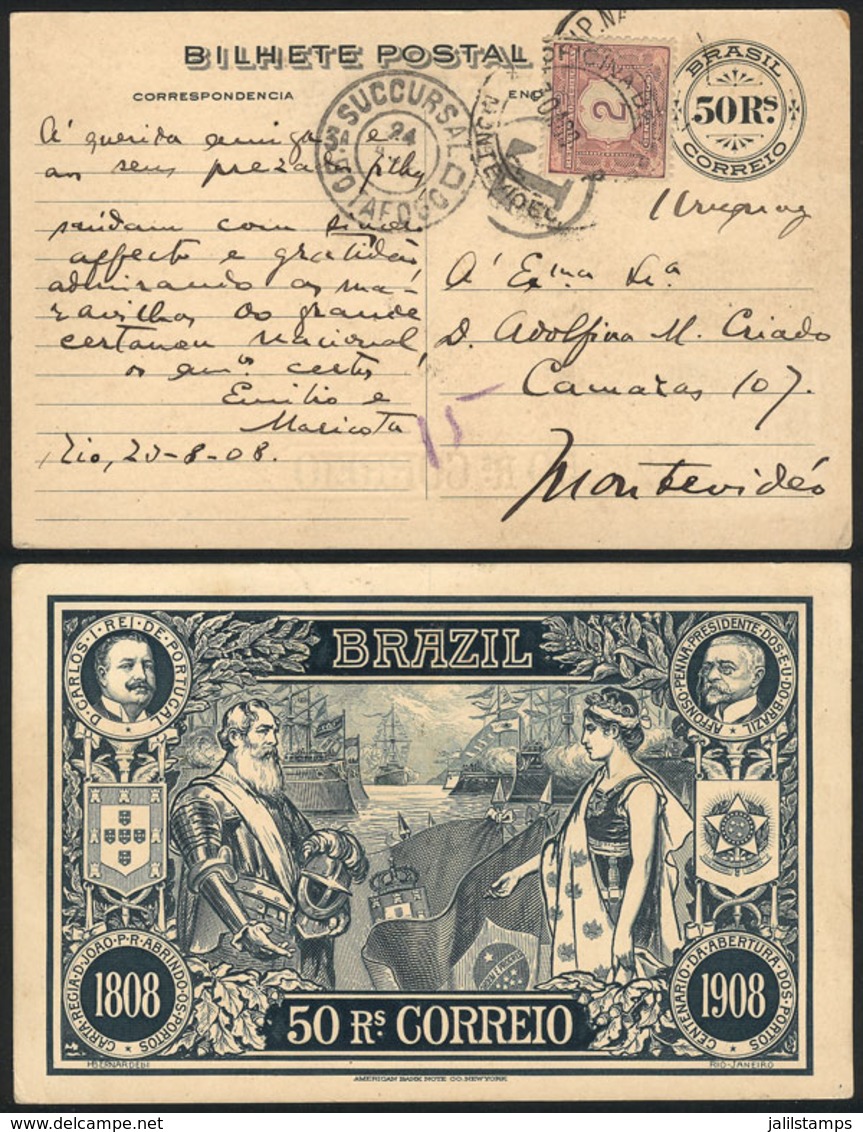 BILHETE POSTAL
CORRESPONDENCIA
BRASIL
50 RS
CORREIO
SUCCURSAL
24
3A BOTAFOGO
OFICINA
MONTEVIDEO
T
2
Á querida amiga e
aos seus prezados filhos
saúdam com sincero
affecto e gratidão
admirando as ma-
ravilhas do grande
certamen nacional,
os amos. certos
Emilio e
Maricota
Rio, 23-8-08.
Uruguay
Á Exma Sra
D. Adolfina M. Criado
Camaras 107.
Montevidéo
15
BRAZIL
D·CARLOS·I·REI·DE·PORTUGAL
AFFONSO·PENNA·PRESIDENTE·DOS·E·U·DO·BRAZIL
CARTA·REGIA·D·JOÃO·P·R·ABRINDO·OS·PORTOS
1808
CENTENARIO·DA·ABERTURA·DOS·PORTOS
1908
50 RS. CORREIO
RIO-JANEIRO
AMERICAN BANK NOTE CO. NEW YORK
jalilstamps